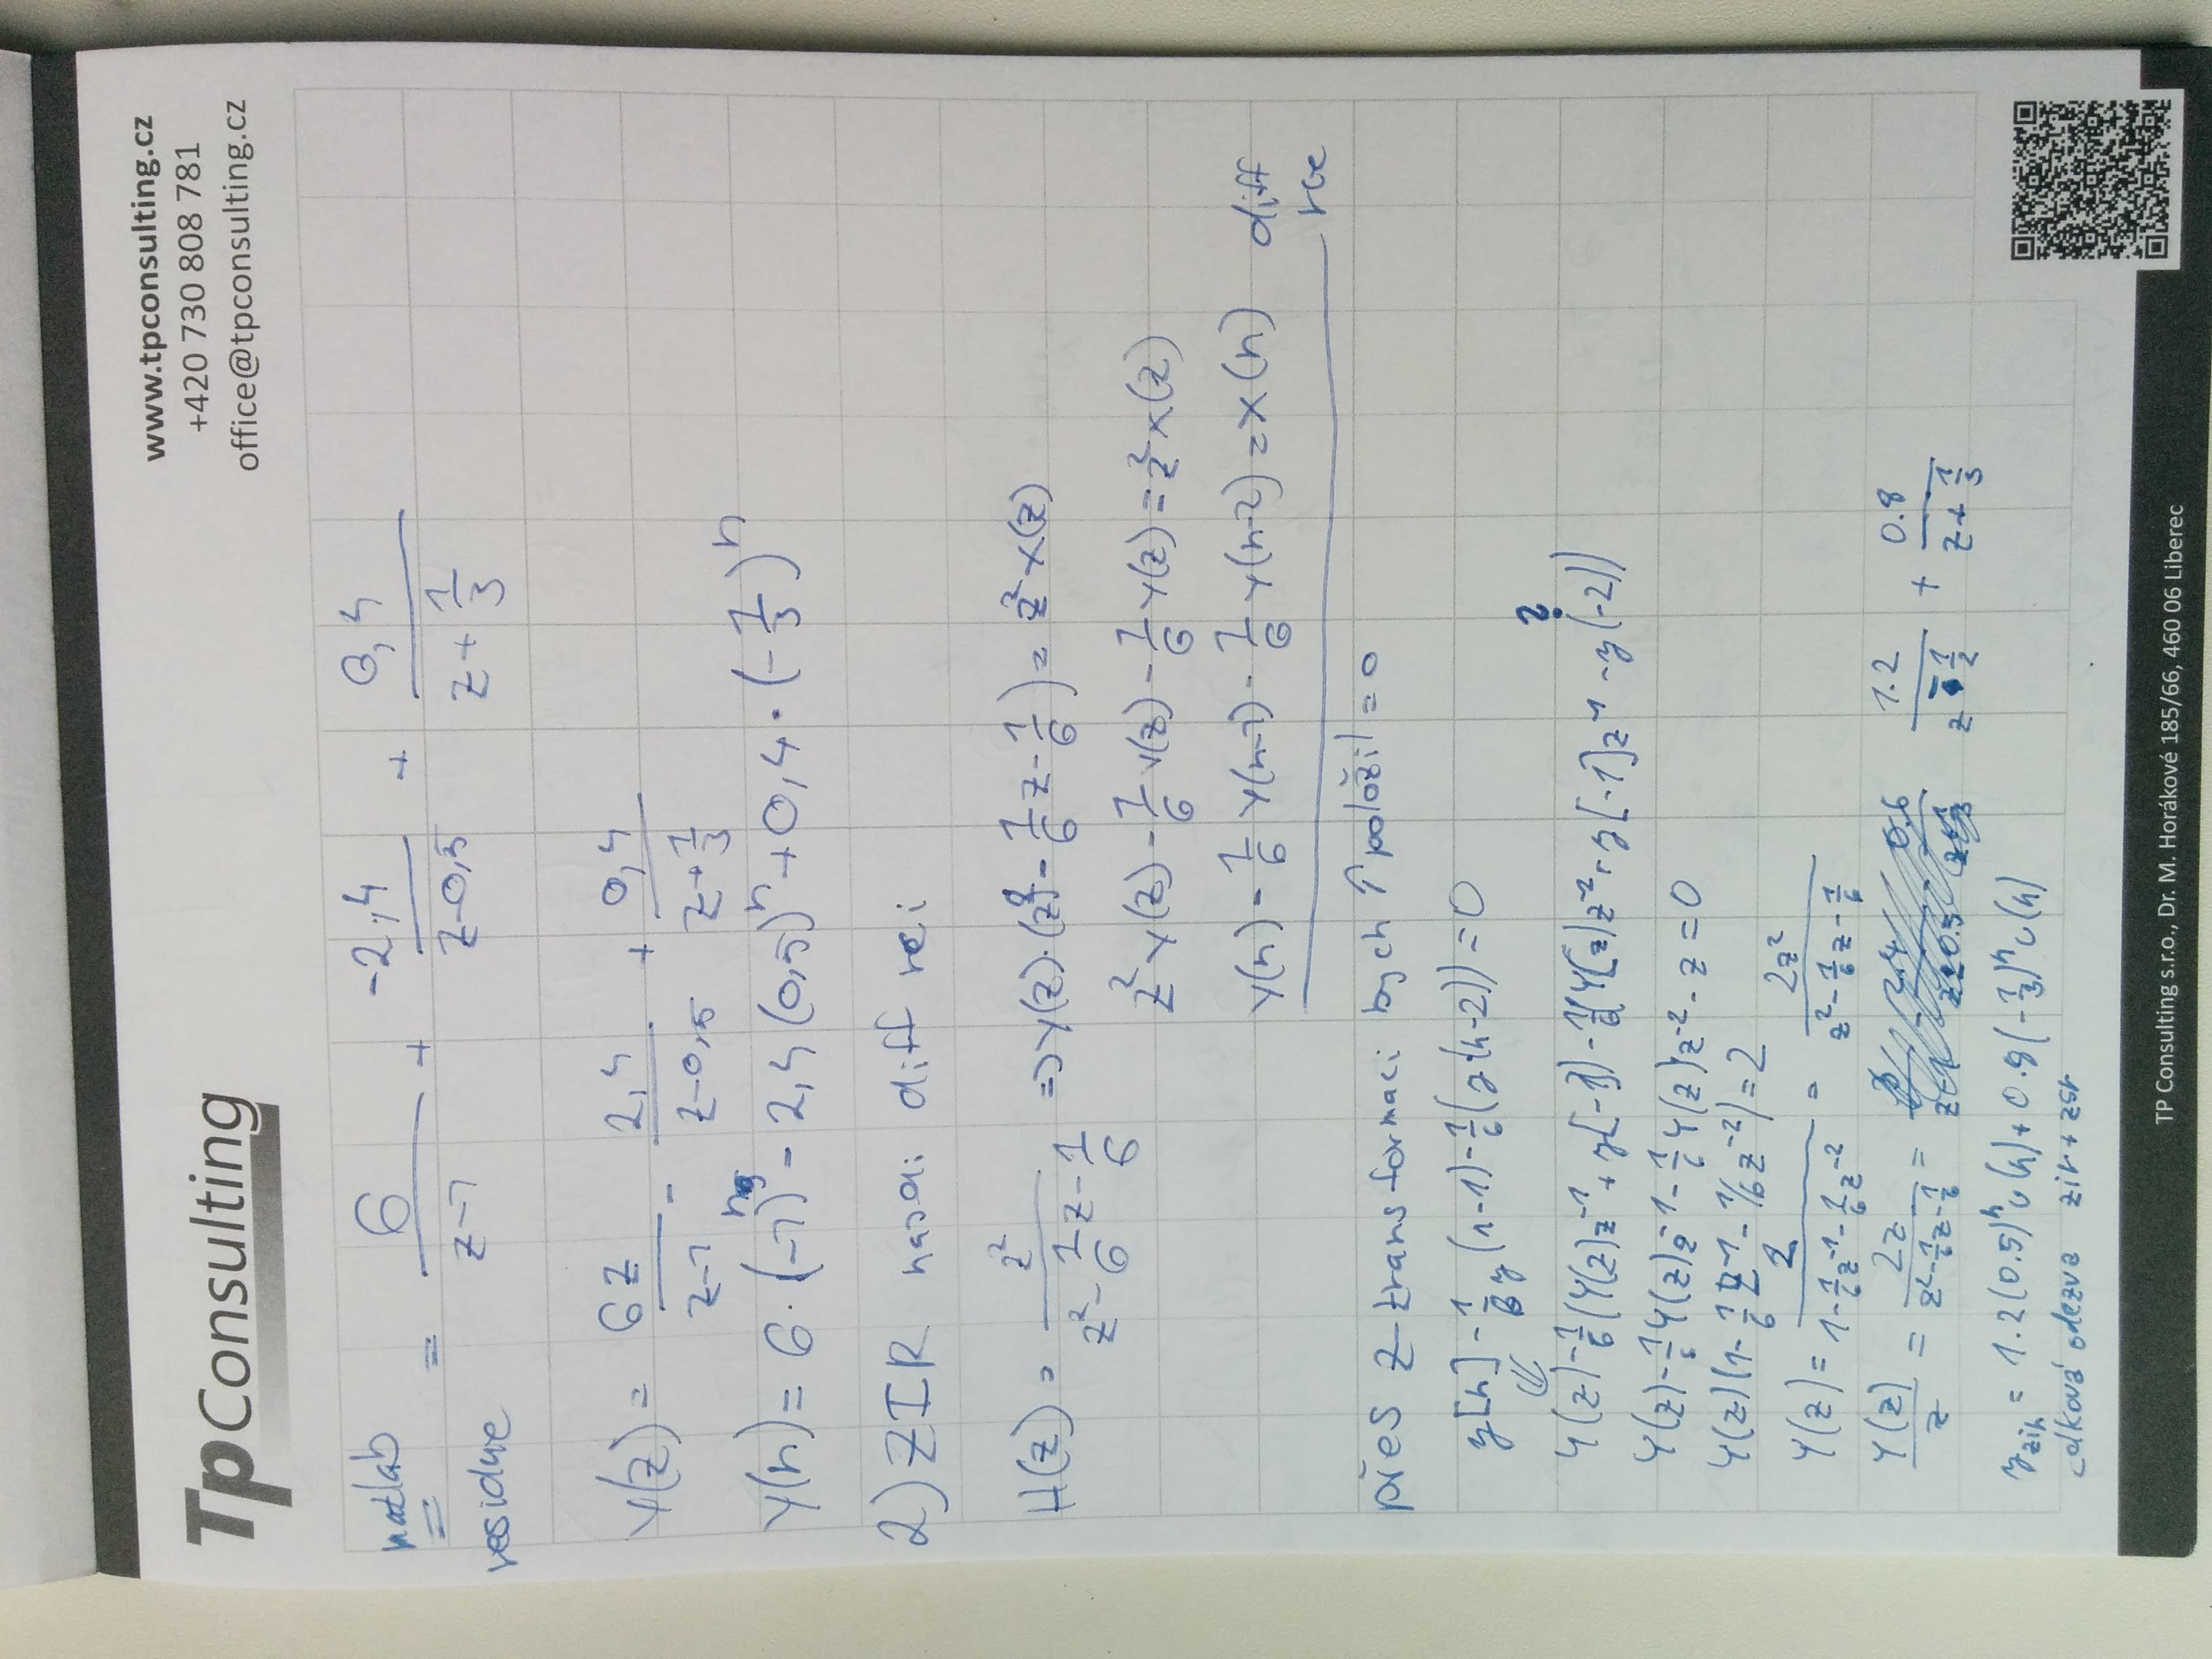 TpConsulting
www.tpconsulting.cz
+420 730 808 781
office@tpconsulting.cz
matlab = 6/(z-1) + -2,4/(z-0,5) + 0,4/(z+1/3)
residue
Y(z) = 6z/(z-1) - 2,4/(z-0,5) + 0,4/(z+1/3)
Y(n) = 6·(-1)^n - 2,4(0,5)^n + 0,4·(-1/3)^n
2) ZIR nasdi diff rci
H(z) = z²/(z²-1/6z-1/6) => Y(z)·(z²-1/6z-1/6) = z²X(z)
z²Y(z)-1/6Y(z)-1/6Y(z)=z²X(z)
Y(n)-1/6Y(n-1)-1/6Y(n-2)=X(n) diff
rce
přes z-transformaci bych ↑položil=0
y[n]-1/6y(n-1)-1/6(y(n-2))=0
Y(z)-1/6(Y(z)z⁻¹+y[-1])-1/6(Y[z]z⁻²+y[-1]z⁻¹-y(-2)) ?
Y(z)-1/6Y(z)z-1-1/6Y(z)z-2-z=0
Y(z)(1-1/6z-1-1/6z-2)=2
Y(z)=2/(1-1/6z-1-1/6z-2) = 2z²/(z²-1/6z-1/6)
Y(z)/z = 2z/(z²-1/6z-1/6) = 1.2/(z-1/2) + 0.8/(z+1/3)
y_zir = 1.2(0.5)^n u(n)+0.8(-1/3)^n u(n)
celková odezva zir+zsr
TP Consulting s.r.o., Dr. M. Horákové 185/66, 460 06 Liberec